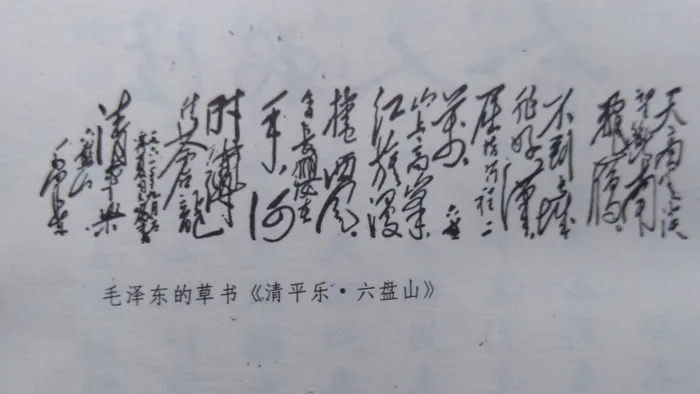 天高云淡
望断南
飛雁。
不到長城
非好漢，
屈指行程二
万。六盘
山上高峯
红旗漫
捲西风。
今日長缨在
手，何
时缚
住蒼龍
清平乐
六盘山
毛泽东
毛泽东的草书《清平乐·六盘山》